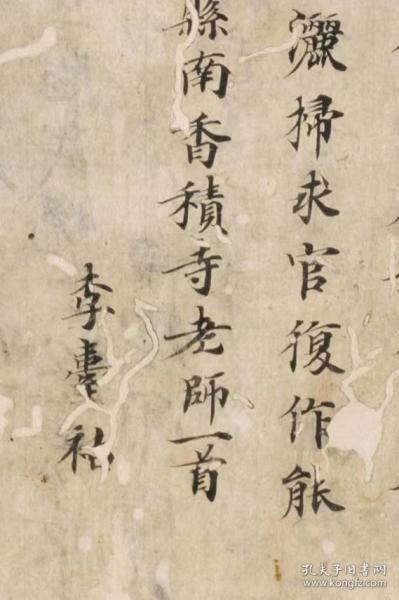 灑掃求官復作能
縣南香積寺老師一首
李臺
孔夫子旧书网
www.kongfz.com